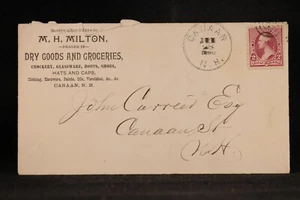 M. H. MILTON,
DEALER IN
DRY GOODS AND GROCERIES,
CROCKERY, GLASSWARE, BOOTS, SHOES,
HATS AND CAPS,
Clothing, Hardware, Paints, Oils, Varnishes, &c., &c.
CANAAN, N. H.
CANAAN
N. H.
John Currier Esq
Canaan St
N.H.